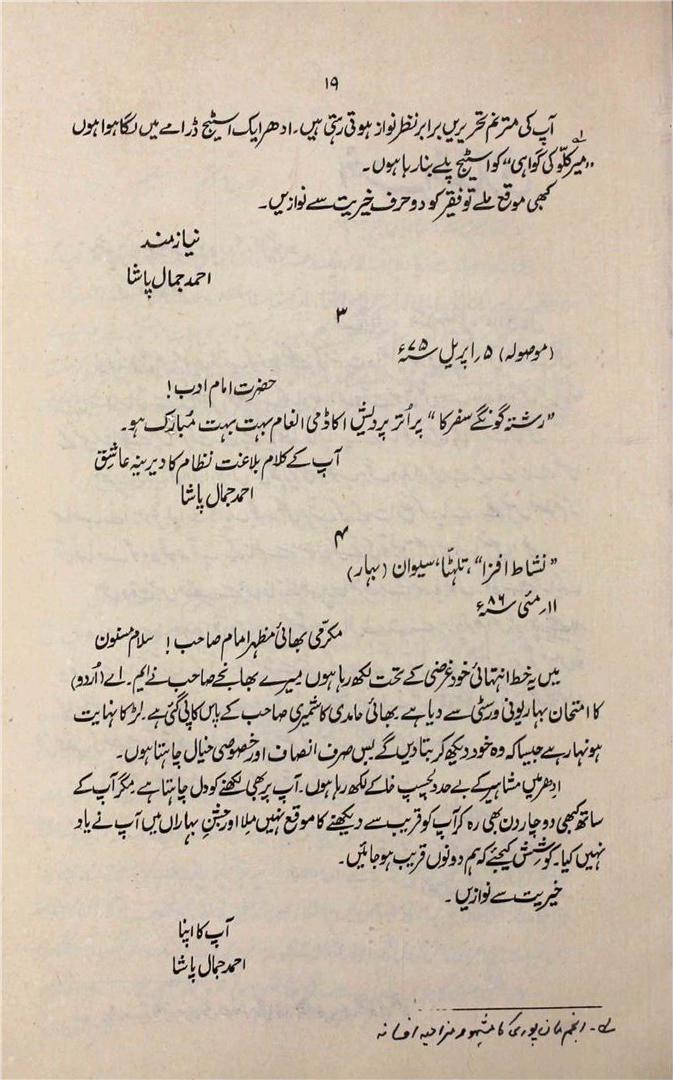 ۱۹
آپ کی مترنم تحریریں برابر نظر نواز ہوتی رہتی ہیں۔ ادھر ایک اسٹیج ڈرامے میں لگا ہوا ہوں
”میر کلّو کی گواہی“ کو اسٹیج پلے بنا رہا ہوں۔
کبھی موقع ملے تو فقیر کو دو حرف خیریت سے نوازیں۔
نیاز مند
احمد جمال پاشا
۳
(موصولہ) ۵؍ اپریل ۷۵ء
حضرت امام ادب!
”رشتہ گونگے سفر کا“ پر اُتر پردیش اکاڈمی انعام بہت بہت مُبارک ہو۔
آپ کے کلام بلاغت نظام کا دیرینہ عاشق
احمد جمال پاشا
۴
”نشاط افزا“، تلہٹّا، سیوان (بہار)
۱۱؍ مئی ۸۶ء
مکرمی بھائی مظہر امام صاحب! سلام مسنون
میں یہ خط انتہائی خود غرضی کے تحت لکھ رہا ہوں میرے بھانجے صاحب نے ایم۔ اے (اُردو)
کا امتحان بہار یونی ورسٹی سے دیا ہے۔ بھائی حامدی کاشمیری صاحب کے پاس کاپی گئی ہے۔ لڑکا نہایت
ہونہار ہے جیسا کہ وہ خود دیکھ کر بتا دیں گے بس صرف انصاف اور خصوصی خیال چاہتا ہوں۔
ادھر میں مشاہیر کے بے حد دلچسپ خاکے لکھ رہا ہوں۔ آپ پر بھی لکھنے کو دل چاہتا ہے مگر آپ کے
ساتھ کبھی دو چار دن بھی رہ کر آپ کو قریب سے دیکھنے کا موقع نہیں ملا اور جشنِ بہاراں میں آپ نے یاد
نہیں کیا۔ کوشش کیجئے کہ ہم دونوں قریب ہو جائیں۔
خیریت سے نوازیں۔
آپ کا اپنا
احمد جمال پاشا
لے۔ انجم مان پوری کا مشہور مزاحیہ افسانہ